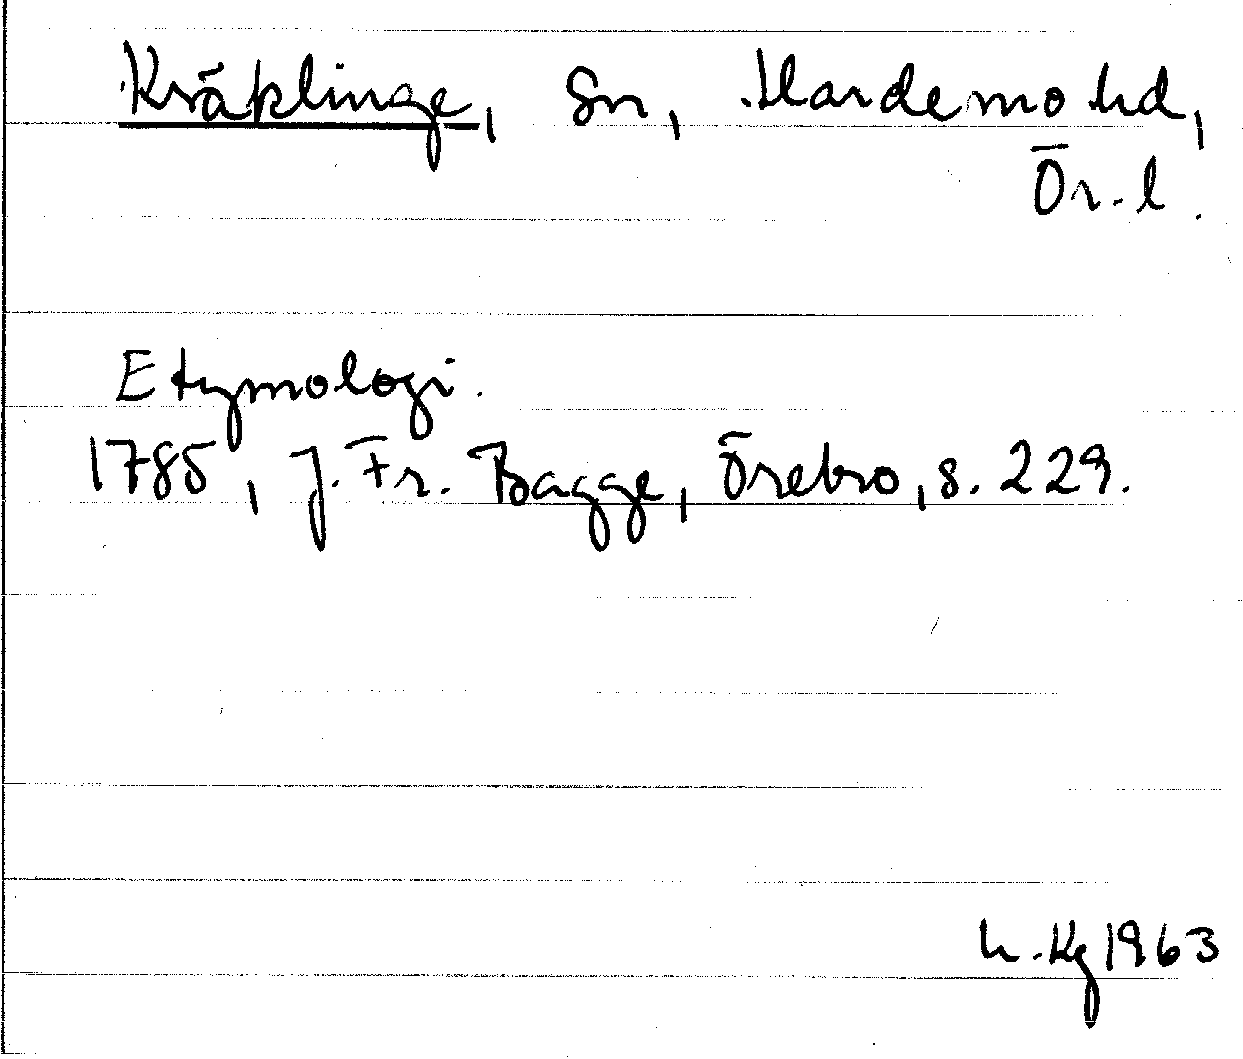 Kräklinge, Sn, Hardemo hd,
Ör. l.
Etymologi.
1785, J. Fr. Bagge, Örebro, s. 229.
h. Kg 1963